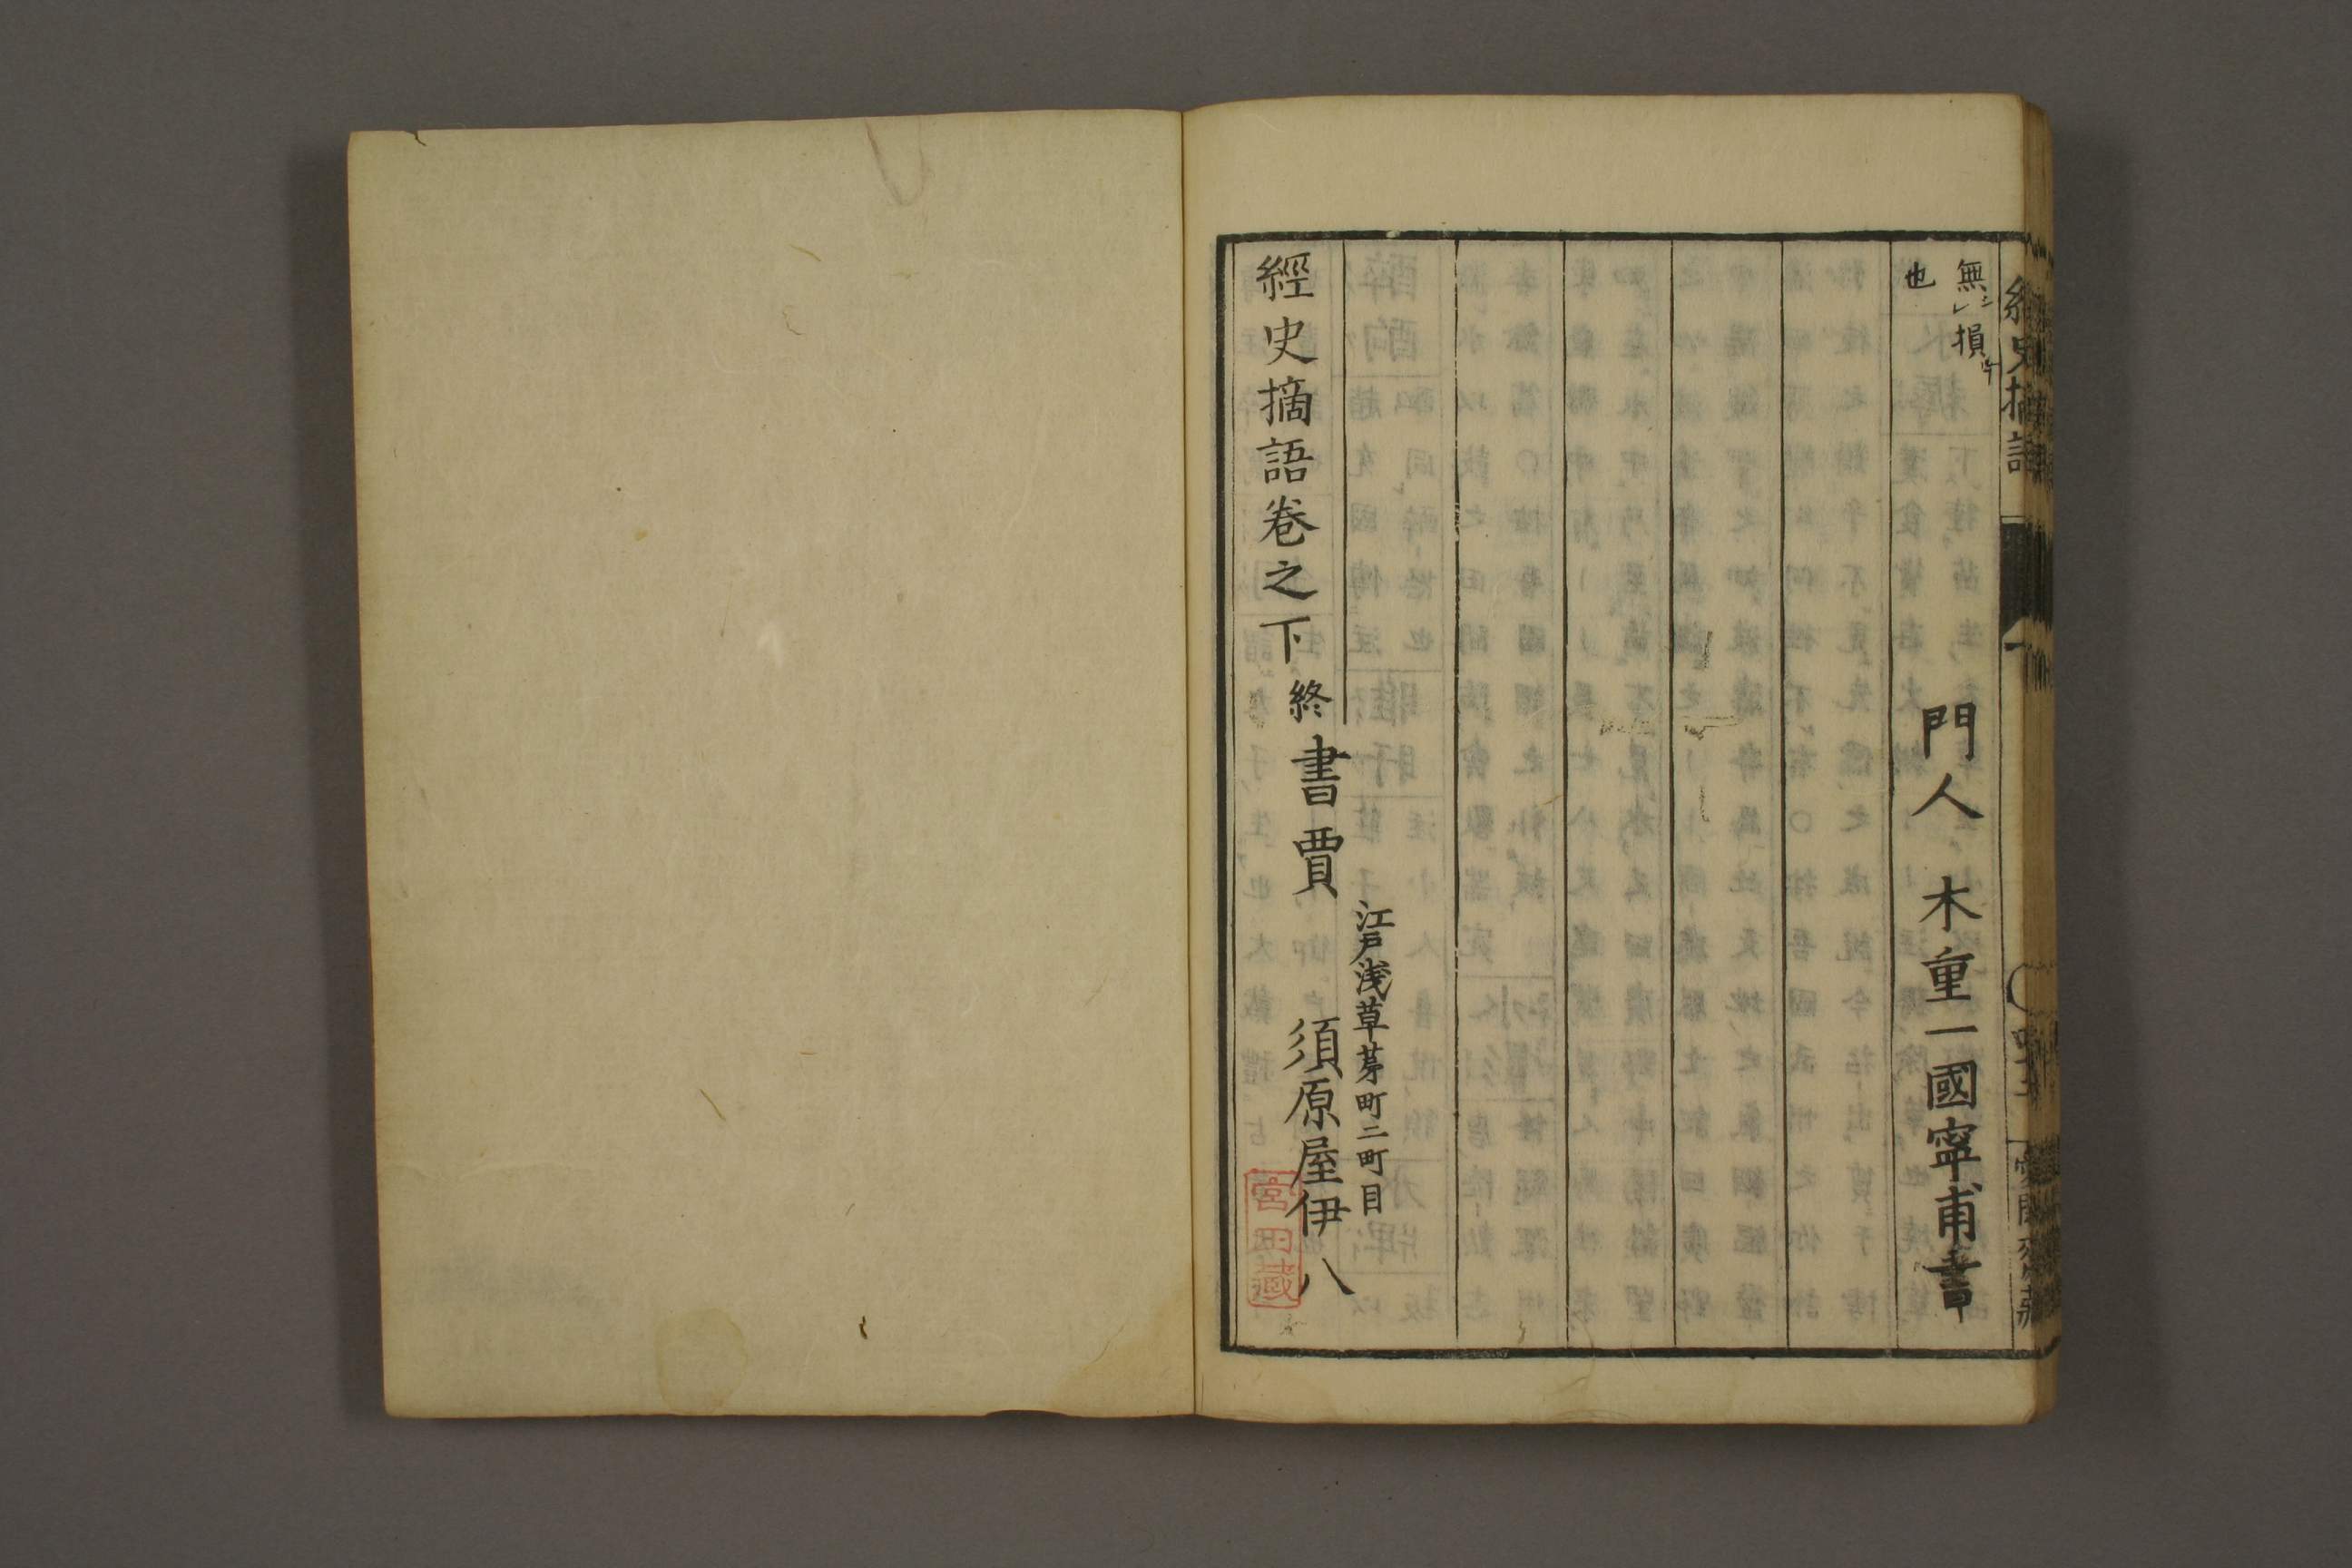 無損
也
門人 木重一國寧甫書
江戸浅草茅町二町目
經史摘語卷之下終 書賈 須原屋伊八
宮田藏
經史摘語